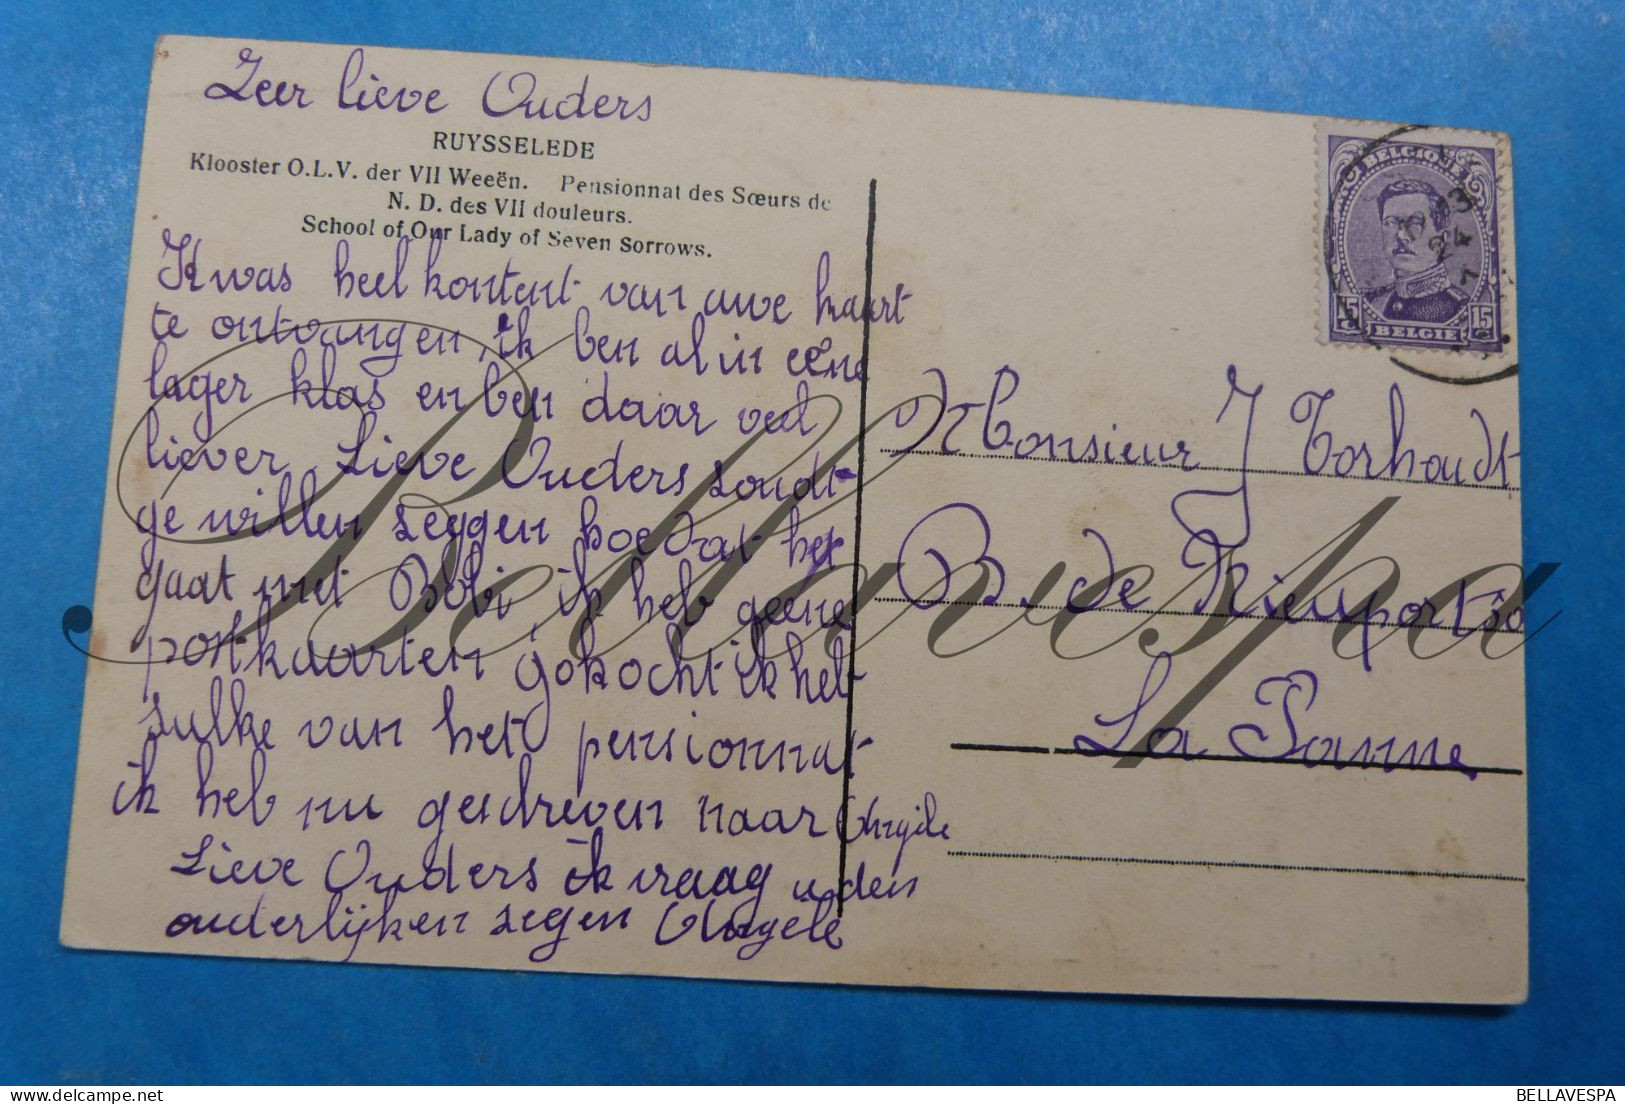 Zeer lieve Ouders
RUYSSELEDE
Klooster O.L.V. der VII Weeën. Pensionnat des Sœurs de
N. D. des VII douleurs.
School of Our Lady of Seven Sorrows.
K was heel kontent van uwe kaart
te ontvangen, ik ben al in eene
lager klas en ben daar veel
liever, Lieve Ouders soudt
ge willen zeggen hoe dat het
gaat met Bebi, ik heb geene
postkaarten gekocht ik heb
sulke van het pensionnat
ik heb nu geschreven naar
Lieve Ouders ik vraag u den
ouderlijken zegen Angèle
BELGIQUE
15 BELGIE 15
24
Monsieur J Torhoudt
B. de Nieuport 30
La Panne
Bellavespa
BELLAVESPA